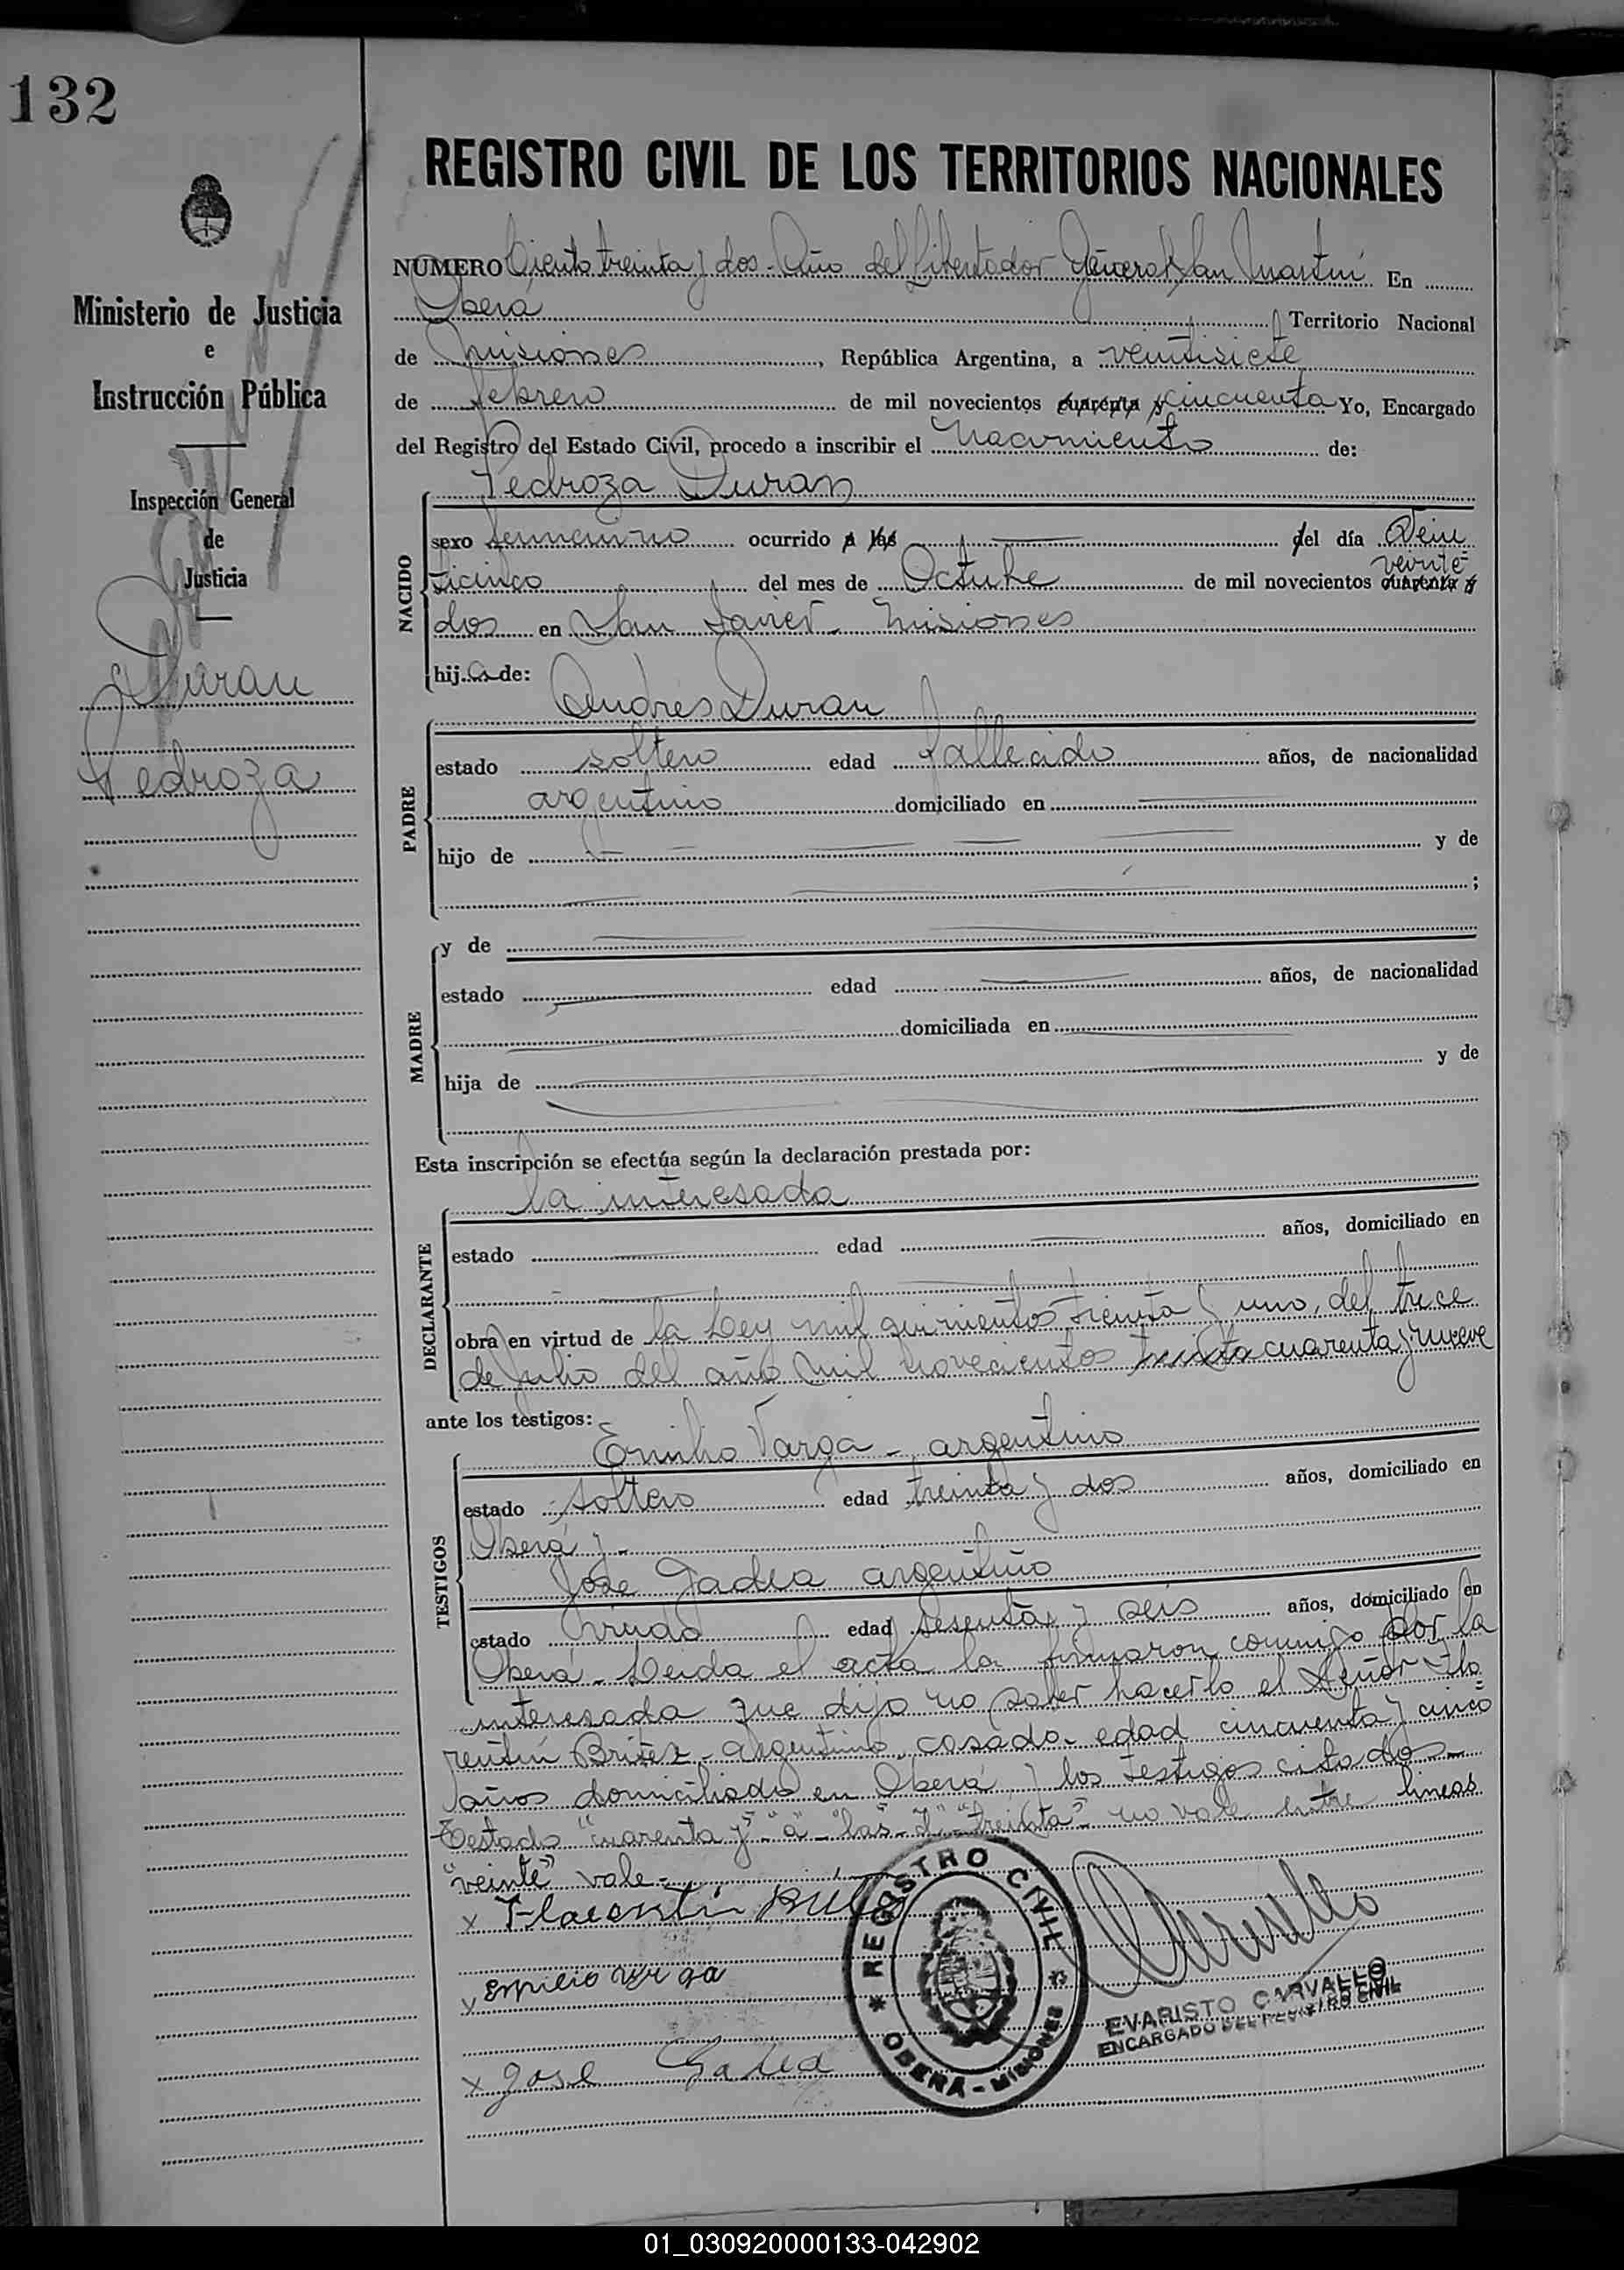 132
REGISTRO CIVIL DE LOS TERRITORIOS NACIONALES
Ministerio de Justicia
e
Instrucción Pública
Inspección General
de
Justicia
Duran
Pedroza
NUMERO Ciento treinta y dos - Año del Libertador General San Martin En
Oberá Territorio Nacional
de Misiones, República Argentina, a veintisiete
de febrero de mil novecientos cuarenta y cincuenta Yo, Encargado
del Registro del Estado Civil, procedo a inscribir el Nacimiento de:
Pedroza Duran
NACIDO
sexo femenino ocurrido a las del día Vein
veinte
ticinco del mes de Octubre de mil novecientos cuarenta y
dos en San Javier - Misiones
hija de:
Andres Duran
PADRE
estado soltero edad fallecido años, de nacionalidad
argentino domiciliado en
hijo de y de
;
MADRE
y de
estado edad años, de nacionalidad
domiciliada en
hija de y de
Esta inscripción se efectúa según la declaración prestada por:
la interesada
DECLARANTE
estado edad años, domiciliado en
obra en virtud de la Ley mil quinientos treinta y uno, del trece
de Julio del año mil novecientos treinta cuarenta y nueve
ante los testigos:
Emilio Varga - argentino
TESTIGOS
estado soltero edad treinta y dos años, domiciliado en
Oberá y -
José Gadea argentino
estado viudo edad sesenta y seis años, domiciliado en
Oberá - Leida el acta la firmaron conmigo por la
interesada que dijo no saber hacerlo el Señor Flo
rentin Britez - argentino, casado - edad cincuenta y cinco
años domiciliado en Oberá y los testigos citados -
Testado "cuarenta y" - "a" - "las" - "d" - "treinta" - no vale entre lineas
"veinte" vale -
x Florentin Britez
x Emilio Varga
x José Gadea
REGISTRO CIVIL
* OBERA - MISIONES *
EVARISTO CARVALLO
ENCARGADO DEL REGISTRO CIVIL
01_030920000133-042902